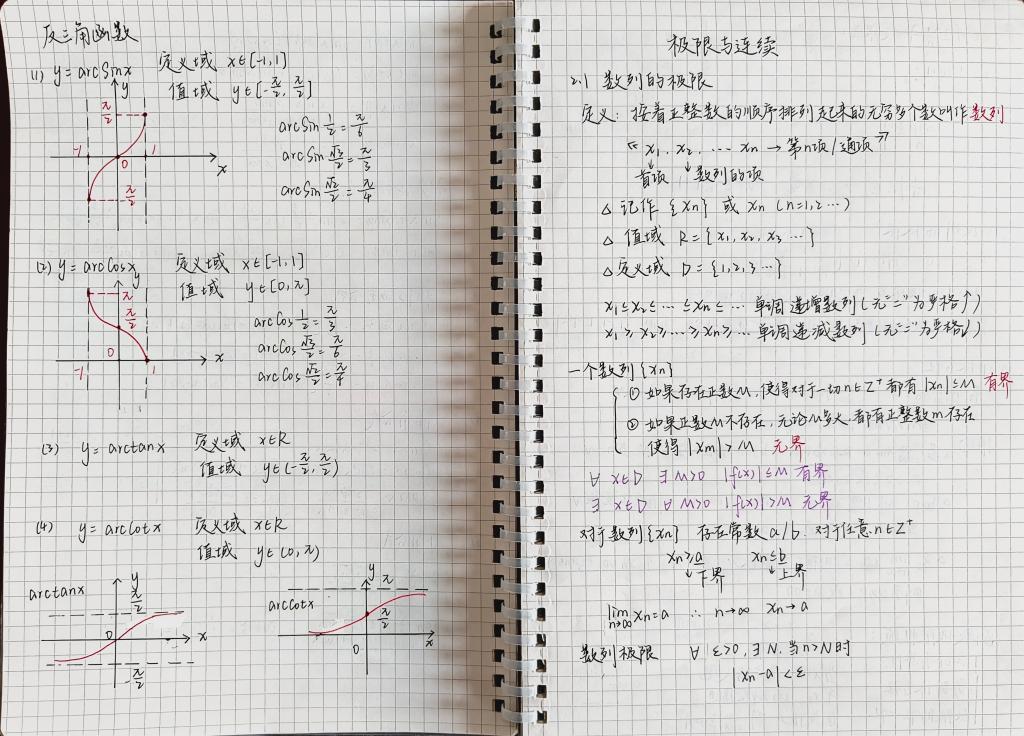 反三角函数
(1) y=arcSinx 定义域 x∈[-1,1]
值域 y∈[-π/2, π/2]
y
π/2
-1 0 1 x
-π/2
arcSin 1/2 = π/6
arcSin √3/2 = π/3
arcSin √2/2 = π/4
(2) y=arcCosx 定义域 x∈[-1,1]
值域 y∈[0,π]
y
π
π/2
0 x
-1 1
arcCos 1/2 = π/3
arcCos √3/2 = π/6
arcCos √2/2 = π/4
(3) y=arctanx 定义域 x∈R
值域 y∈(-π/2, π/2)
(4) y=arcCotx 定义域 x∈R
值域 y∈(0,π)
arctanx
y
π/2
0 x
-π/2
arcCotx
y
π
π/2
0 x
极限与连续
2.1 数列的极限
定义: 按着正整数的顺序排列起来的无穷多个数叫作数列
“x₁, x₂, … xn → 第n项/通项”
首项 数列的项
△ 记作 {xn} 或 xn (n=1,2…)
△ 值域 R={x₁, x₂, x₃ …}
△ 定义域 D={1,2,3…}
x₁≤x₂≤… ≤xn≤… 单调递增数列 (无“=”为严格↑)
x₁≥x₂≥…≥xn≥… 单调递减数列 (无“=”为严格↓)
一个数列{xn}
① 如果存在正数M, 使得对于一切n∈Z⁺都有|xn|≤M 有界
② 如果正数M不存在, 无论M多大, 都有正整数m存在
使得|xm|>M 无界
∀ x∈D ∃ M>0 |f(x)|≤M 有界
∃ x∈D ∀ M>0 |f(x)|>M 无界
对于数列{xn} 存在常数a/b. 对于任意n∈Z⁺
xn≥a xn≤b
下界 上界
lim n→∞ xn=a ∴ n→∞ xn→a
数列极限 ∀ ε>0, ∃ N, 当n>N时
|xn-a|<ε